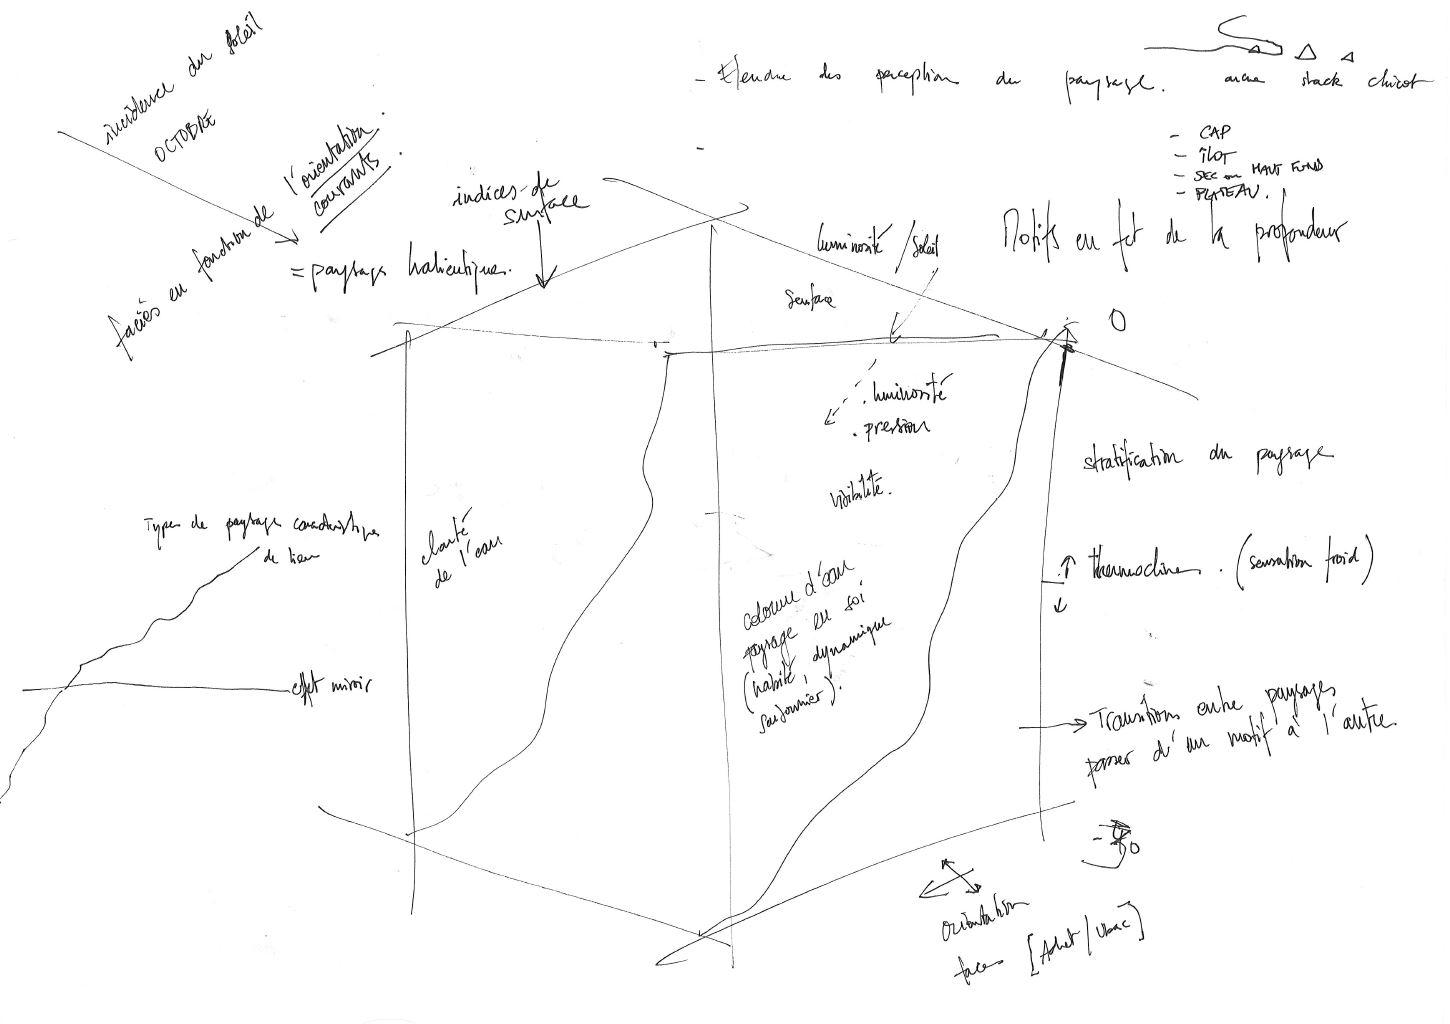 incidence du soleil
OCTOBRE
faciès en fonction de l'orientation.
courants.
= paysage halieutiques.
indices de
surface
- Etendue des perception du paysage.
arche stack chicot
-
- CAP
- ÎLOT
- SEC ou HAUT FOND
- PLATEAU.
Motifs en fct de la profondeur
luminosité / soleil
surface
0
. luminosité
. pression
visibilité.
stratification du paysage
Types de paysage caractéristiques
de lieu
clarté
de l'eau
thermoclines. (sensation froid)
colonne d'eau
paysage en soi
(habité, dynamique
saisonnier).
effet miroir
Transitions entre paysages
passer d'un motif à l'autre.
orientation
faces [Adret/Ubac]